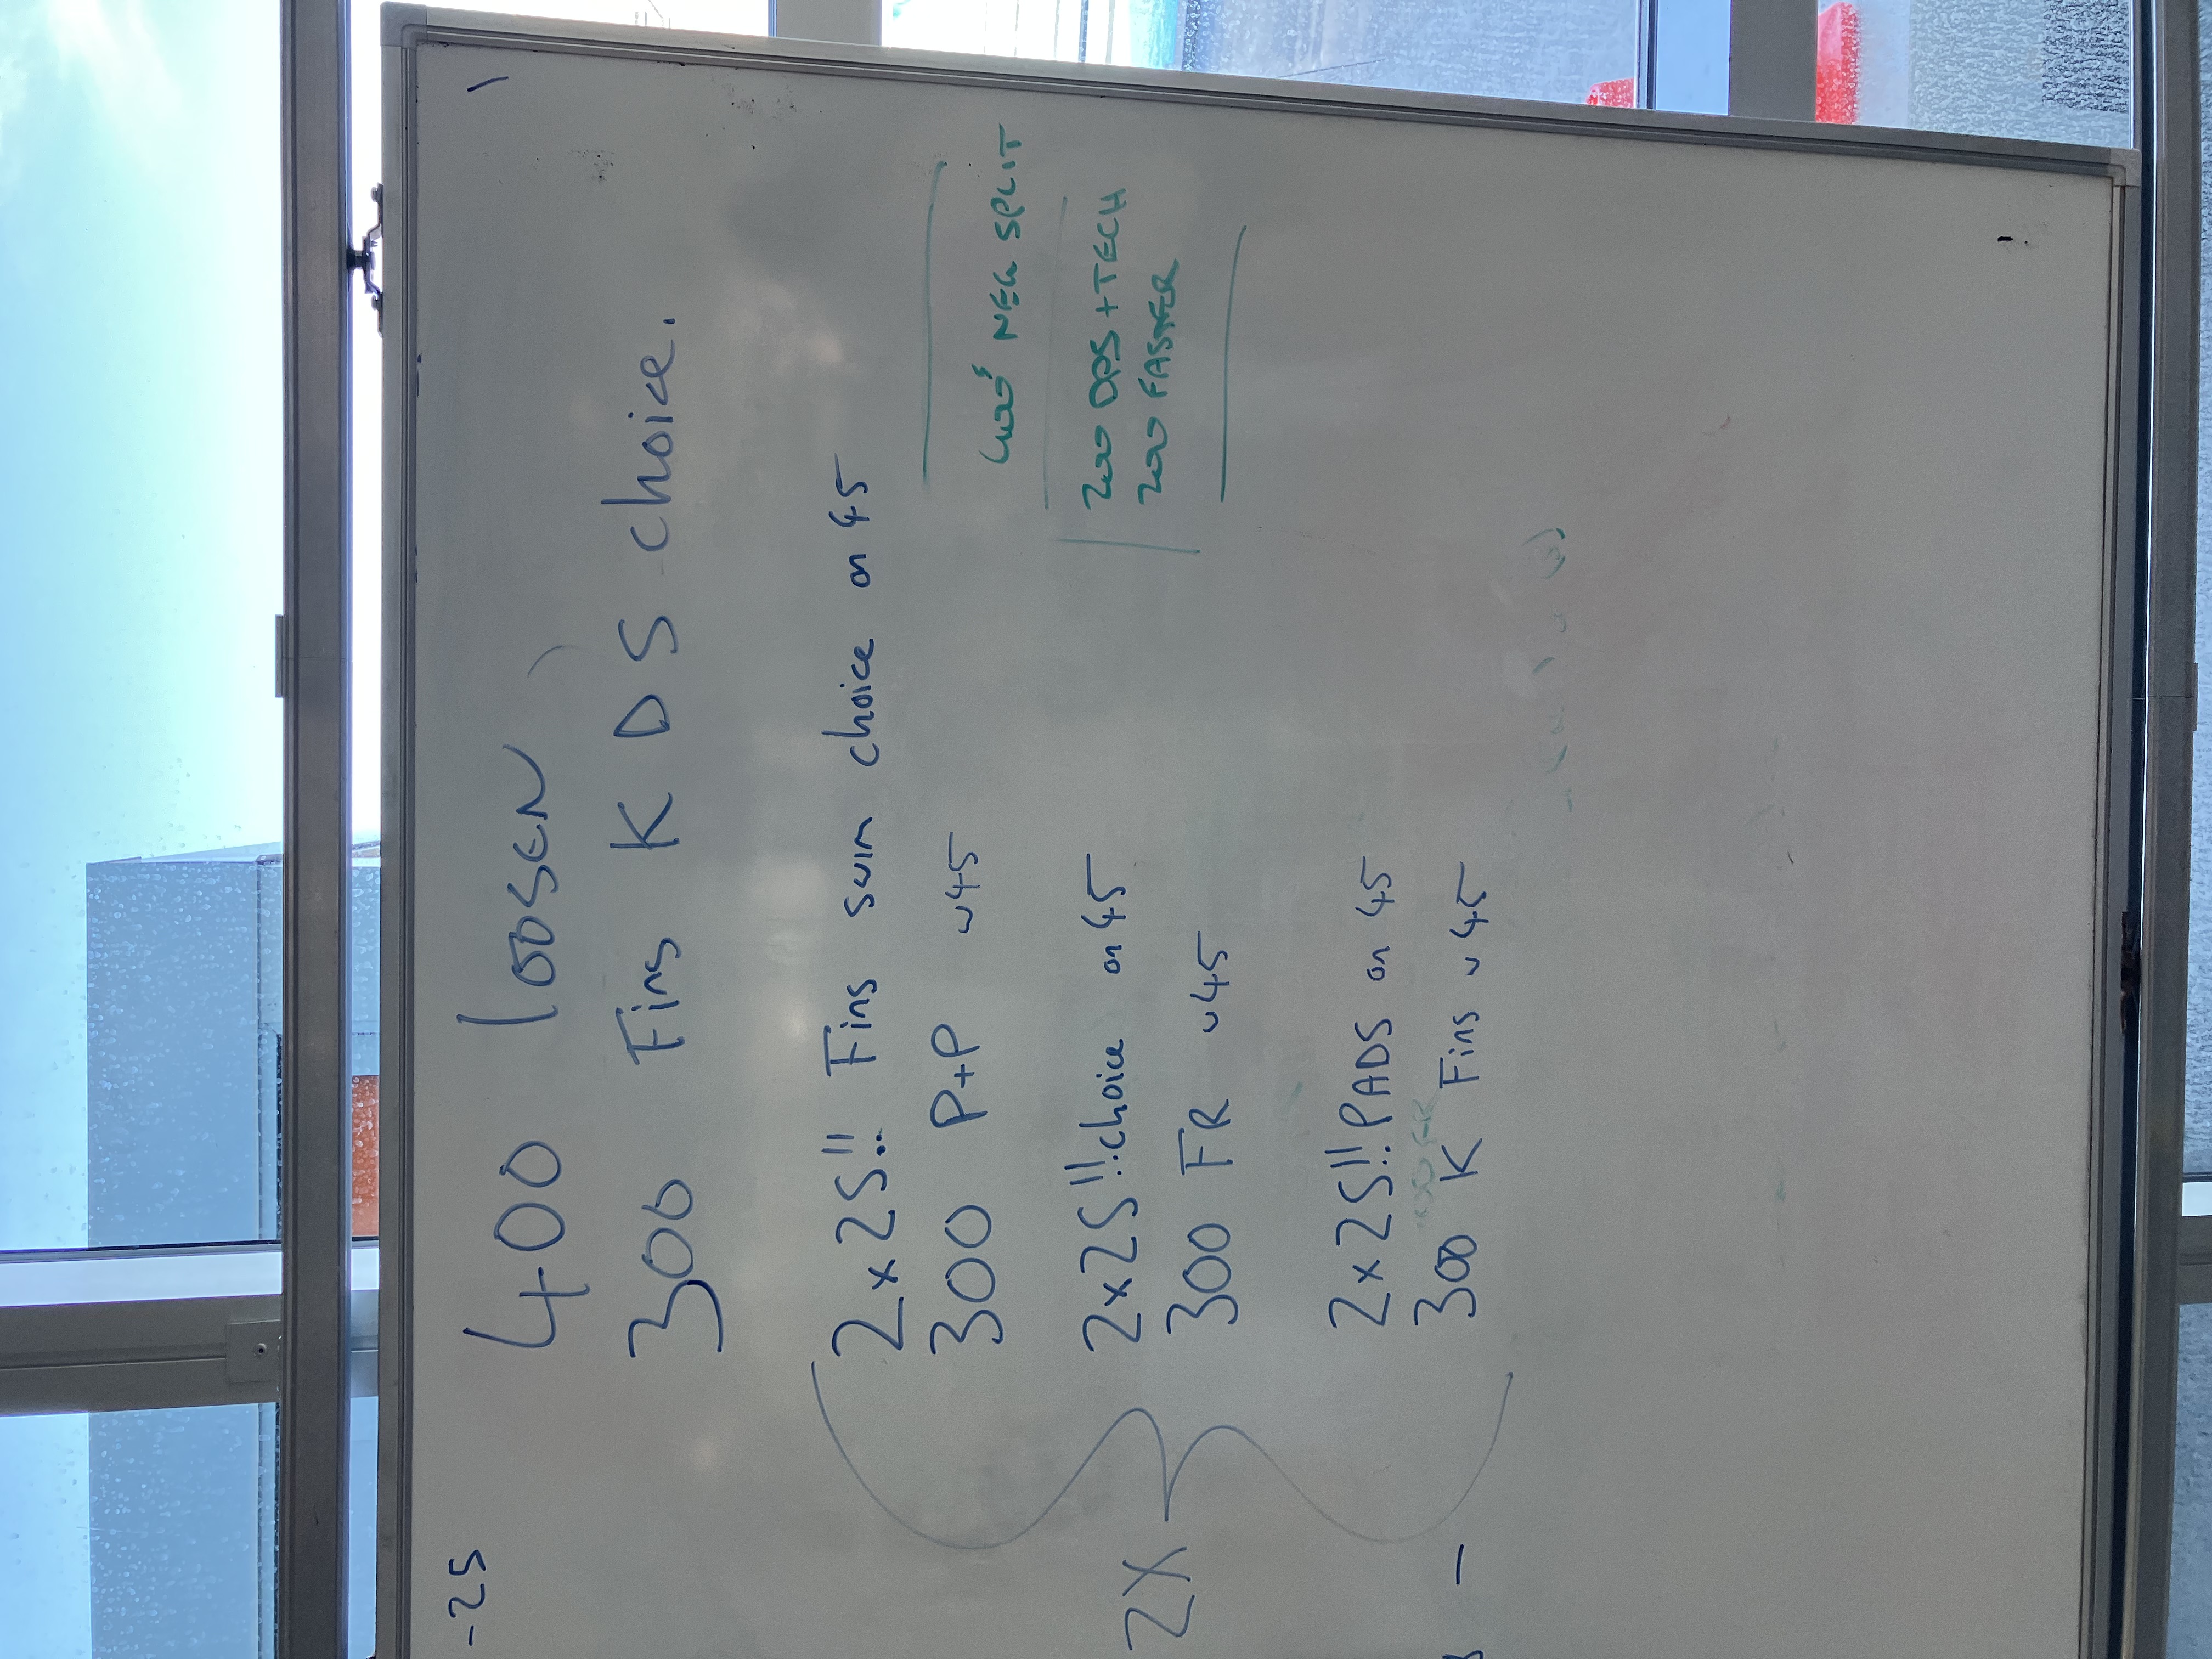 -25
400 loosEN
300 Fins K D S choice.
2x25!! Fins swim choice on 45
300 P+P ~45
400s NEG SPLIT
2x25!! choice on 45
200 DPS + TECH
200 FASTER
300 FR ~45
2X
2x25!! PADS on 45
300 K Fins ~45